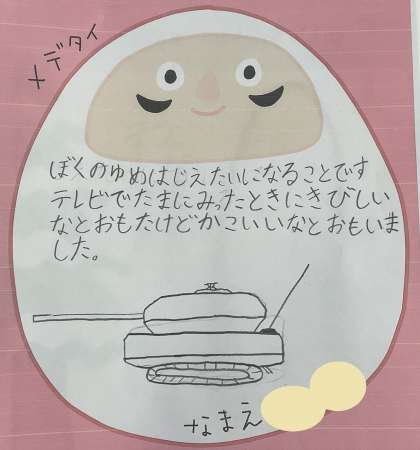 メデタイ
ぼくのゆめはじえたいになることです
テレビでたまにみったときにきびしい
なとおもたけどかこいいなとおもいま
した。
なまえ